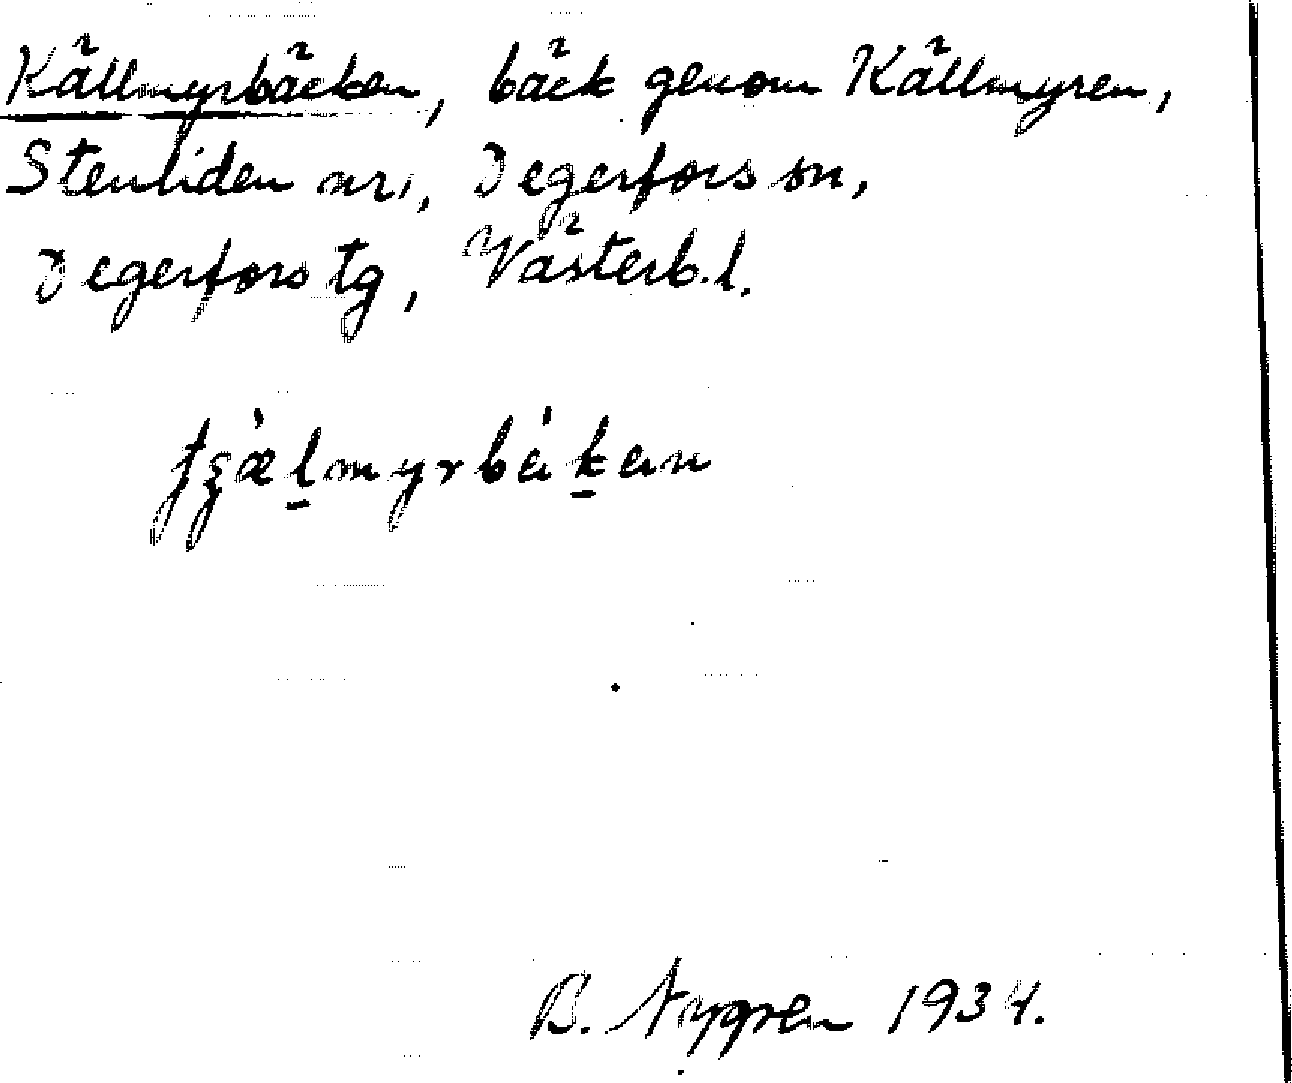 Källmyrbäcken, bäck genom Källmyren,
Stenliden nr 1, Degerfors sn,
Degerfors tg, Västerb. l.
B. Nygren 1934.